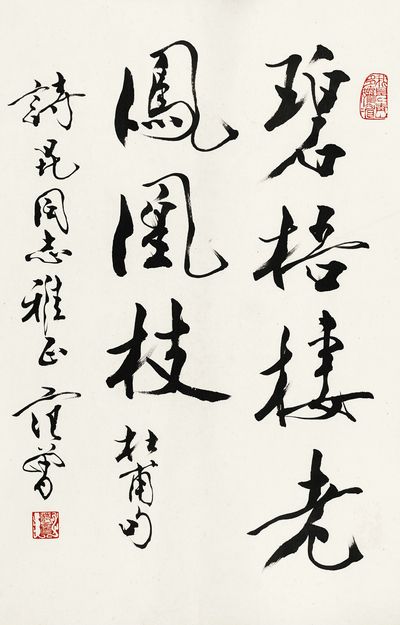 碧梧棲老
鳳凰枝 杜甫句
詩昆同志雅正 范曾